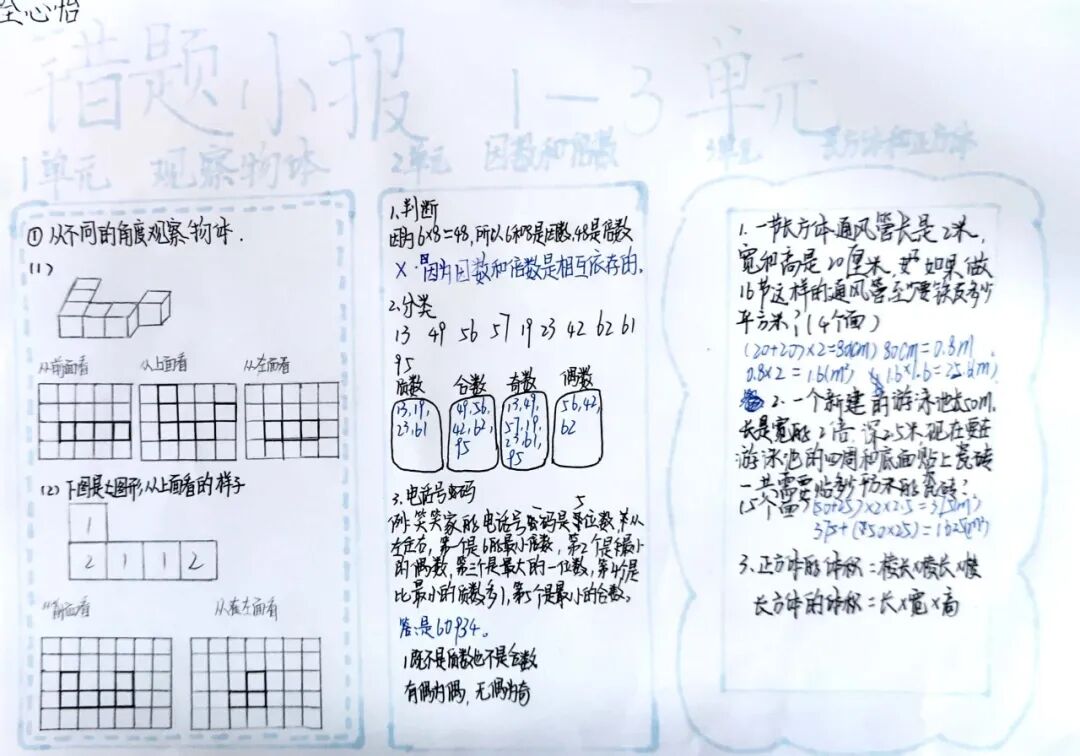 全心怡
错题小报 1-3单元
1单元 观察物体
①从不同的角度观察物体.
(1)
从前面看 从上面看 从左面看
(2) 下图是大图形从上面看的样子
1
2 1 1 2
从前面看 从左面看
2单元 因数和倍数
1.判断
因为6×8=48,所以6和8是因数,48是倍数
×.因为因数和倍数是相互依存的.
2.分类
13 49 56 57 19 23 42 62 61
95
质数 合数 奇数 偶数
13,19,
23,61
49,56,
42,62,
95
13,49,
57,19,
23,61,
95
56,42,
62
3.电话号码
例:笑笑家的电话号码是5位数,从
左至右,第一个是6的最小倍数,第2个是最小
的偶数,第三个是最大的一位数,第4个是
比最小的质数多1,第5个是最小的合数。
答:是60934。
1既不是质数也不是合数
有偶为偶,无偶为奇
3单元 长方体和正方体
1.一节长方体通风管长是2米,
宽和高是20厘米,如果做
16节这样的通风管至少要铁皮多少
平方米?(4个面)
(20+20)×2=80(cm) 80cm=0.8m
0.8×2=1.6(m²) 1.6×1.6=25.6(m)
2.一个新建的游泳池长50m,
长是宽的2倍,深2.5米,现在要在
游泳池的四周和底面贴上瓷砖
一共需要贴多少平方米的瓷砖?
(5个面) (50+25)×2×2.5=375(m²)
375+(50×25)=1625(m²)
3.正方体的体积=棱长×棱长×棱
长方体的体积=长×宽×高